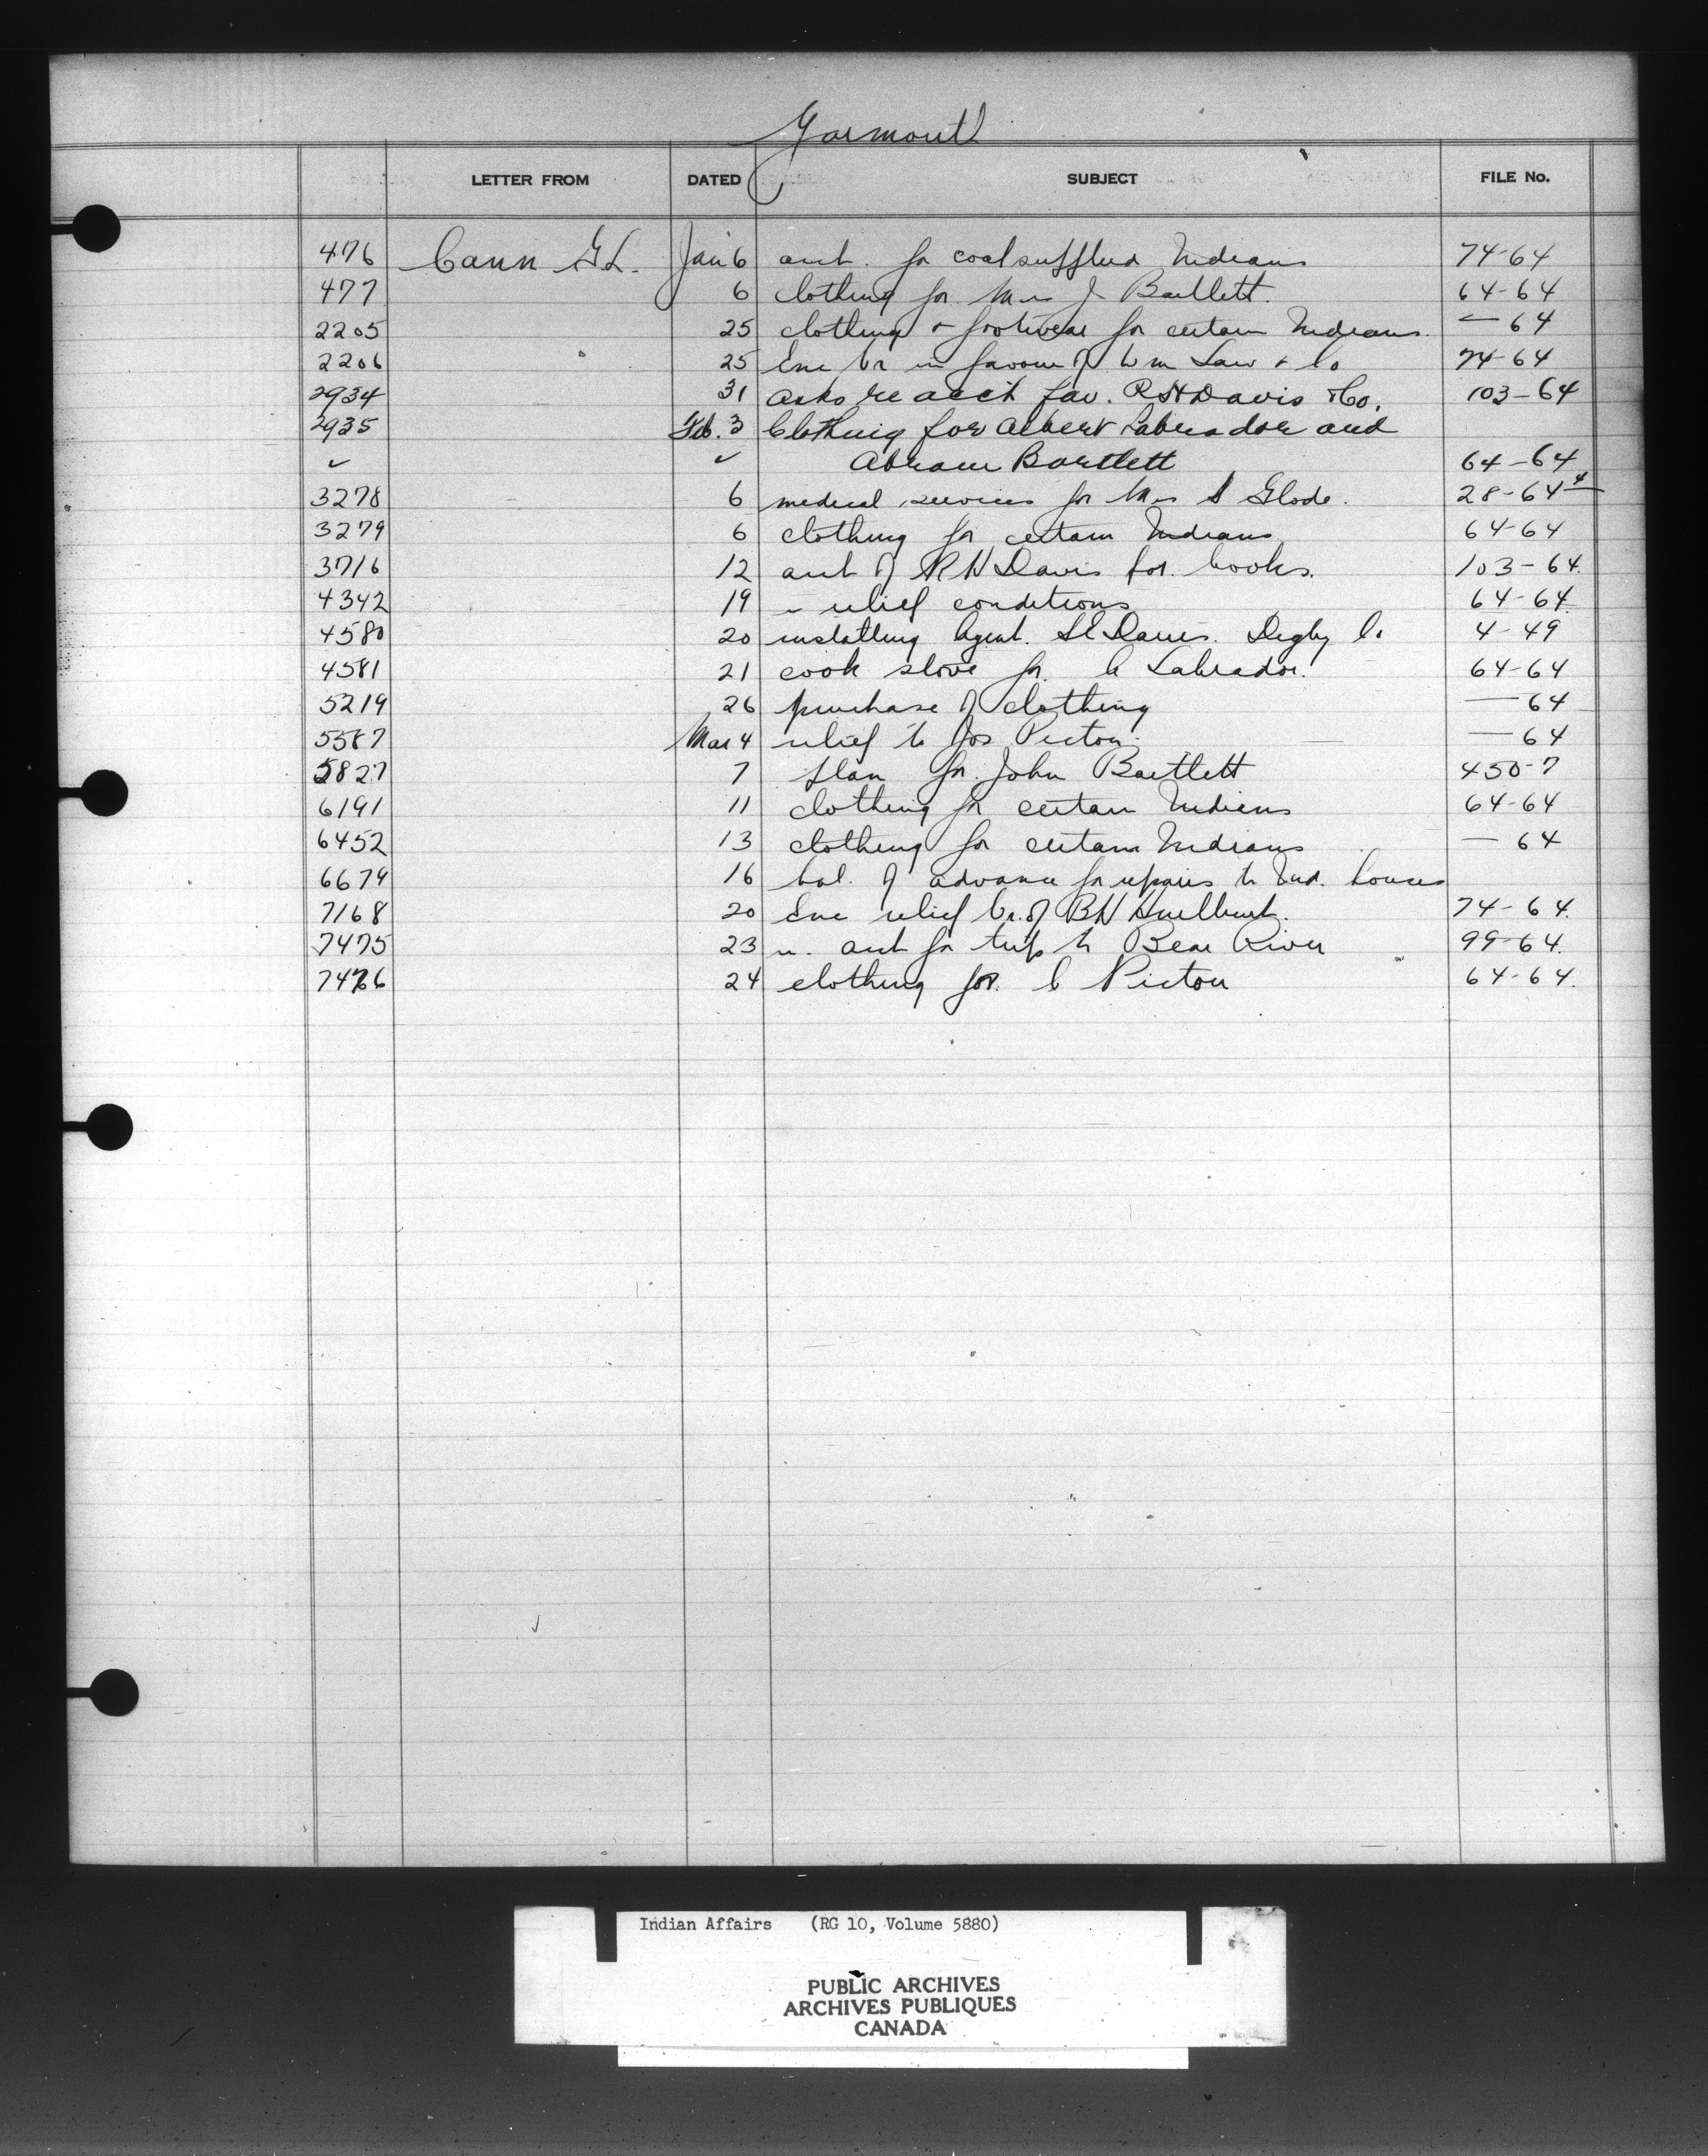 Yarmouth
LETTER FROM DATED SUBJECT FILE No.
476 Cann G L. Jan 6 acct. for coal supplied Indians 74-64
477 6 clothing for Mrs J Bartlett. 64-64
2205 25 clothing & footwear for certain Indians. — 64
2206 25 Enc vr in favour of Wm Law & Co 74-64
2934 31 asks re acct fav. R H Davis & Co. 103-64
2935 Feb. 3 Clothing for Albert Labrador and
✓ ✓ Abram Bartlett 64-64
3278 6 medical services for Mrs S Glode. 28-64
3279 6 clothing for certain Indians 64-64
3716 12 acct of R H Davis for books. 103-64.
4342 19 relief conditions 64-64
4580 20 installing Agent. Digby Co 4-49
4581 21 cook stove for Labrador. 64-64
5219 26 purchase of clothing — 64
5587 Mar 4 relief to Jos Pictou. — 64
5827 7 plan for John Bartlett 450-7
6191 11 clothing for certain Indians 64-64
6452 13 clothing for certain Indians — 64
6679 16 bal. of advance for repairs to Ind. houses
7168 20 Enc relief vr. of B H Hurlburt. 74-64.
7475 23 ". acct for trip to Bear River 99-64.
7476 24 clothing for C Pictou 64-64.
Indian Affairs (RG 10, Volume 5880)
PUBLIC ARCHIVES
ARCHIVES PUBLIQUES
CANADA